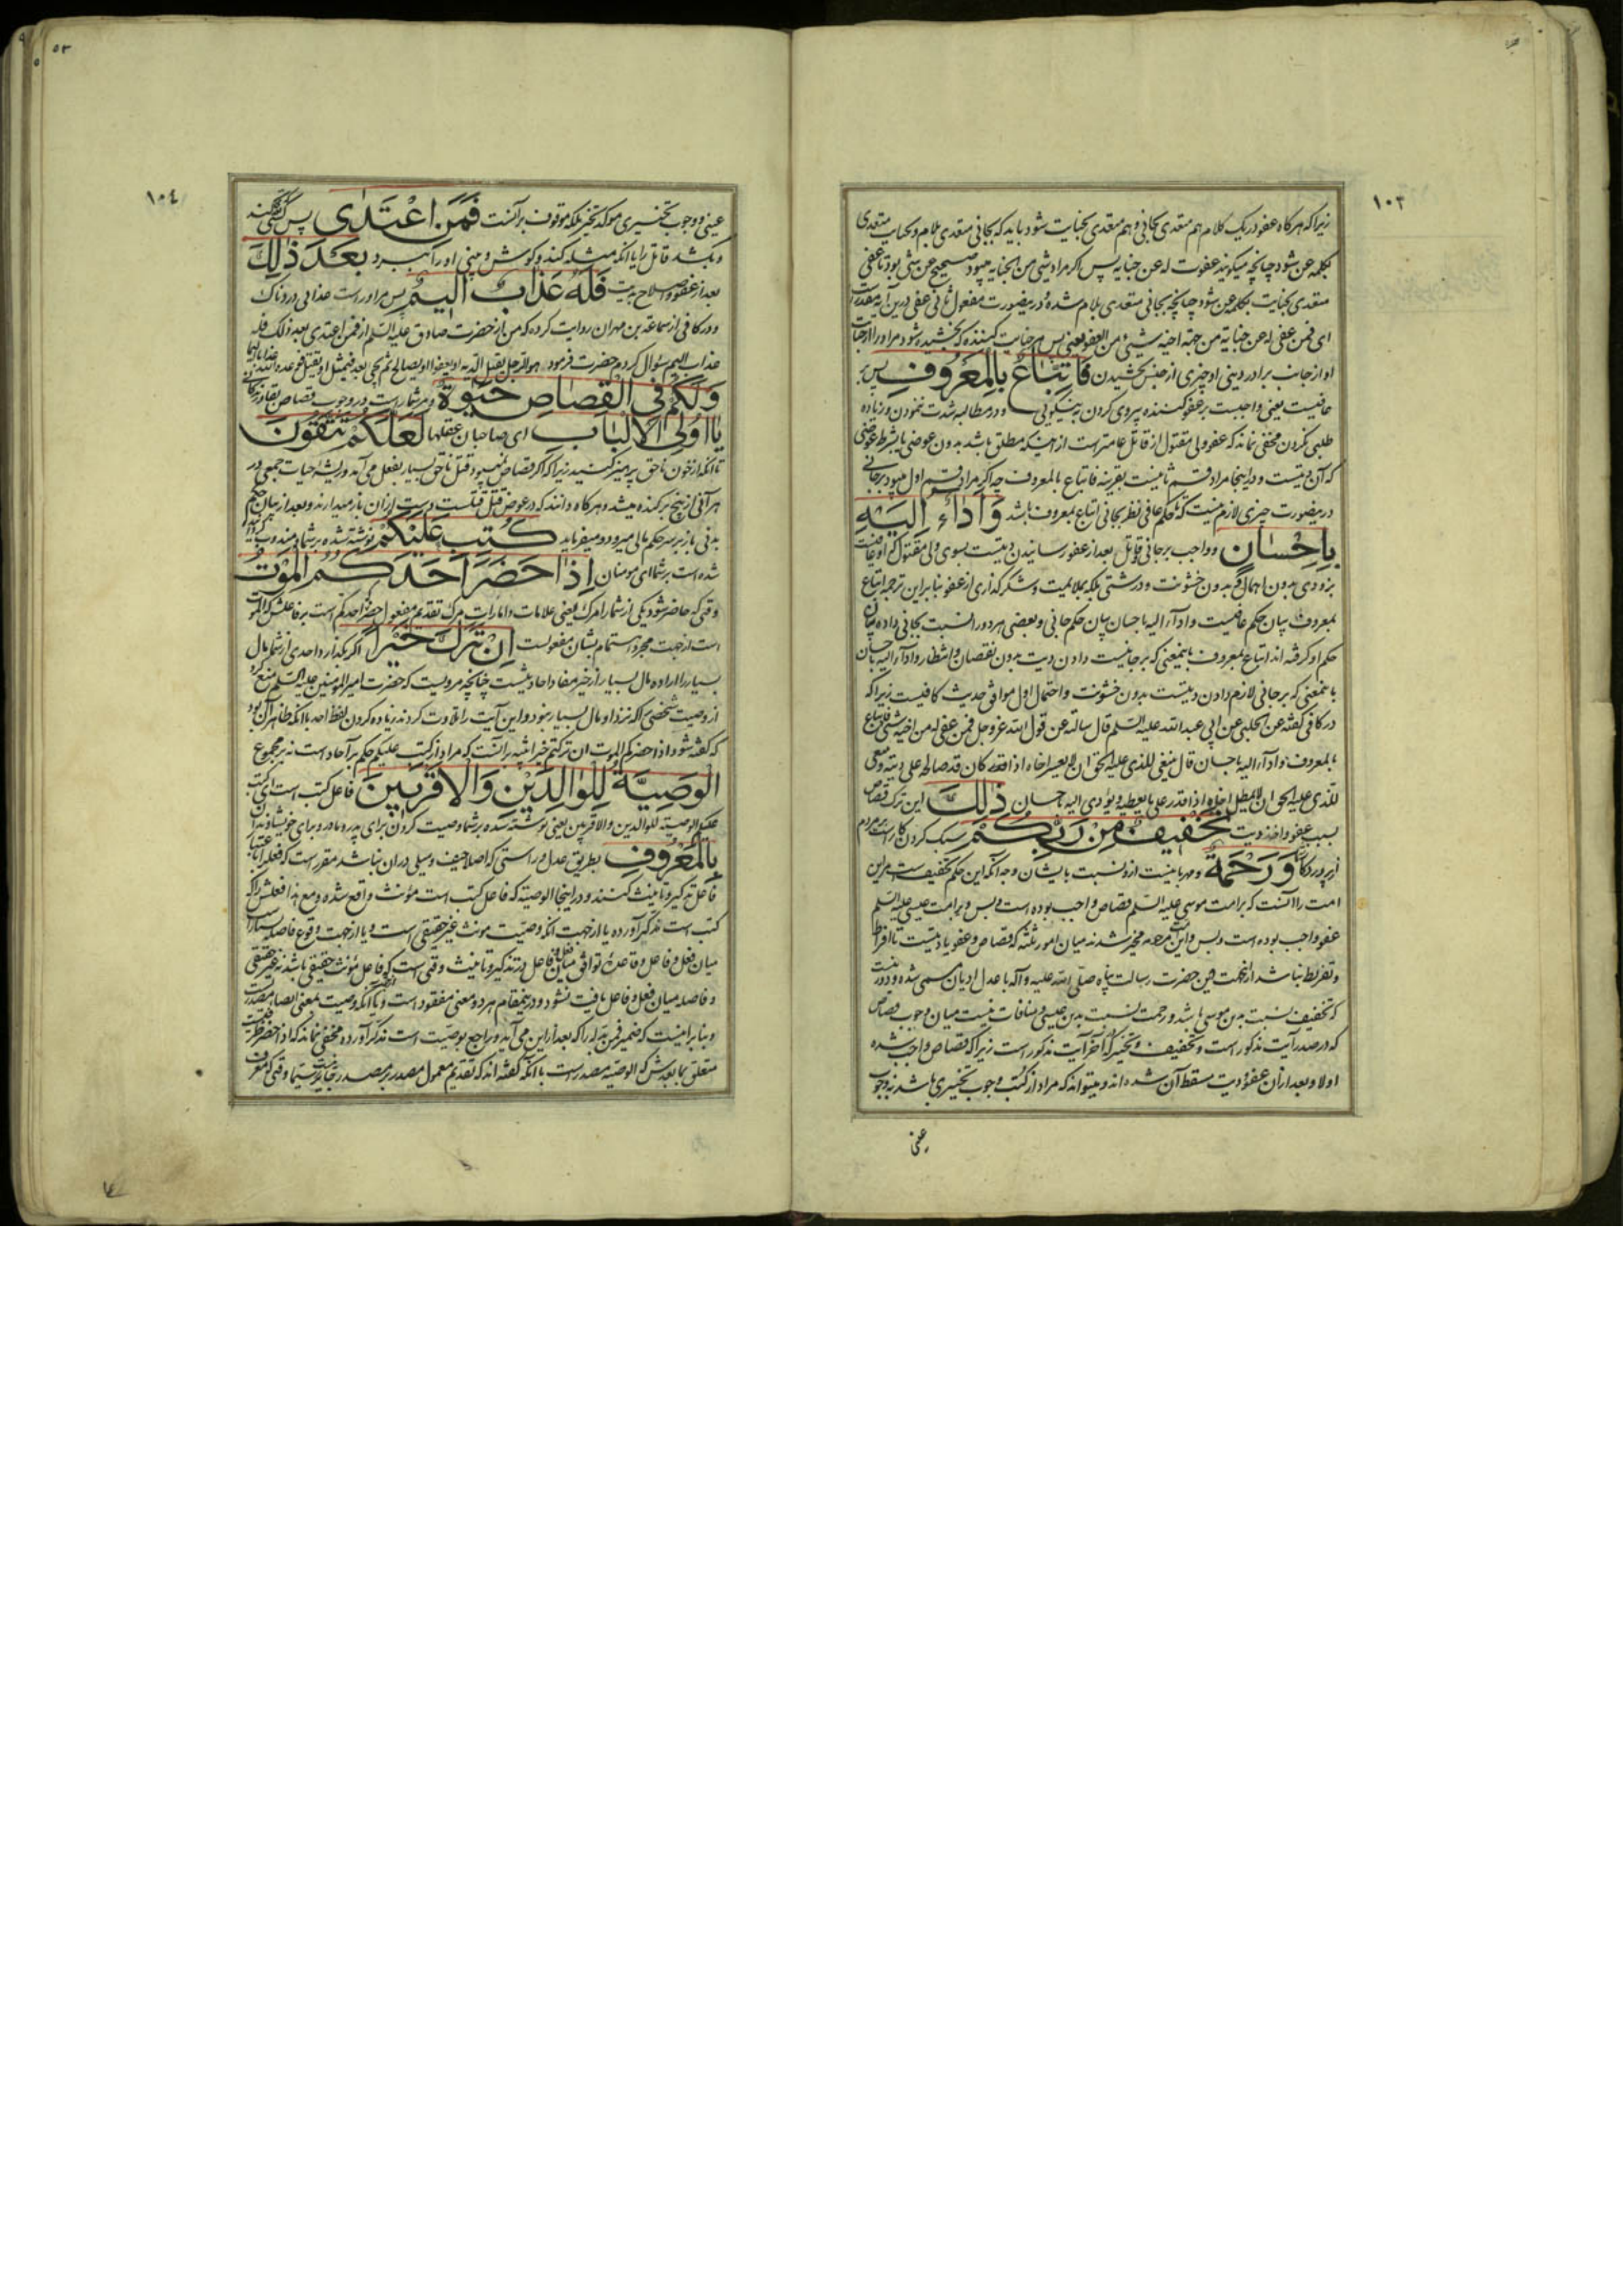 ١٠٣
زیراکه هرکاه عفو در یک کلام هم متعدی بجانی و هم متعدی بجنایت شود باید که بجانی متعدی بلام و بجنایت متعدی
بکلمه عن شود چنانچه میکویند عفوت له عن جنایه پس اکر مراد شیئ من الجنایه میبود صحیح عن شیئ بود تا عفی
متعدی بجنایت بکلمه عن شود چنانچه بجانی متعدی بلام شده و درینصورت مفعول ثانی عفی درین آیه مقدر است
ای فمن عفی له عن جنایة من جهة اخیه شیئ من العفو یعنی پس هر جنایت کننده که بخشیده شود مر او را از جنایت
او از جانب برادر دینی او چیزی از جنس بخشیدن فَاتِّبَاعٌ بِالْمَعْرُوفِ پس بر
عافیست یعنی واجبست بر عفو کننده پیروی کردن به نیکوئی و در مطالبه شدت ننمودن و زیاده
طلبی نکردن مخفی نماند که عفو ولی مقتول از قاتل عامتر است از اینکه مطلق باشد بدون عوضی یا بشرط عوضی
که آن دیتست و در اینجا مراد قسم ثانیست بقرینه فاتباع بالمعروف چه اکر مراد قسم اول میبود بر جانی
درینصورت چیزی لازم نیست که تا حکم عافی نظر بجانی اتباع بمعروف باشد وَاَدَاءٌ اِلَيْهِ
بِاِحْسَانٍ و واجب بر جانی و قاتل بعد از عفو رسانیدن دیتست بسوی ولی مقتول که او عافیست
بزودی بدون اهمال و بدون خشونت و درشتی بلکه بملایمیت و شکرکذاری از عفو بنابراین ترجمه اتباع
بمعروف بیان حکم عافیست و اداء الیه باحسان بیان حکم جانی و بعضی هر دو را نسبت بجانی داده بیان
حکم او کرفته اند اتباع بمعروف باینمعنی که بر جانیست دادن دیت بدون نقصان و انتظار و اداء الیه باحسان
باینمعنی که بر جانی لازم دادن دیتست بدون خشونت و احتمال اول موافق حدیث کافیست زیراکه
در کافی کفته عن الحلبی عن ابی عبد الله علیه السلم قال سالته عن قول الله عز و جل فمن عفی له من اخیه شیئ فاتباع
بالمعروف و اداء الیه باحسان قال ینبغی للذی علیه الحق ان لا یعسر اخاه اذا قدر کان قد صالحه علی دیة و ینبغی
للذی علیه الحق ان لا یمطل اخاه اذا قدر علی ما یعطیه و یؤدی الیه باحسان ذٰلِكَ این ترک قصاص
بسبب عفو و اخذ دیت تَخْفِيفٌ مِنْ رَبِّكُمْ سبک کردن کار است بر مردم
از پروردکار وَرَحْمَةٌ و مهربانیست از و نسبت بایشان وجه آنکه این حکم تخفیف است مر این
امت را آنست که بر امت موسی علیه السلم قصاص واجب بوده است و بس و بر امت عیسی علیه السلم
عفو واجب بوده است و بس و این امت مرحومه مخیر شدند میان امور ثلثه که قصاص و عفو یا دیتست تا افراط
و تفریط نباشد از اینجهت دین حضرت رسالت پناه صلی الله علیه و آله با عدل ادیان مسمی شده و دور نیست
که تخفیف نسبت بدین موسی باشد و رحمت نسبت بدین عیسی و منافات نیست میان وجوب قصاص
که در صدر آیت مذکور است و تخفیف و تخییر که آخر آیت مذکور است زیراکه قصاص واجب شده
اولا و بعد از آن عفو و دیت مسقط آن شده اند و میتواند که مراد از کتب وجوب تخییری باشد نه وجوب
عینی
١٠٤
عینی و وجوب تخییری موکد تخییر بلکه موقوف بر آنست فَمَنِ اعْتَدٰى پس کسی که ستم کند
و بکشد قاتل را یا انکه مثله کند و کوش و بینی او را ببرد بَعْدَ ذٰلِكَ
بعد از عفو و اصلاح بدیت فَلَهُ عَذَابٌ اَلِيمٌ پس مر او راست عذابی دردناک
و در کافی از سماعة بن مهران روایت کرده که من از حضرت صادق علیه السلم از فمن اعتدی بعد ذلک فله
عذاب الیم سؤال کردم حضرت فرمود هو الرجل یقبل الدیه او یعفو او یصالح ثم یجیئ بعد فیمثل او یقتل فوعده الله عذابا الیما
وَلَكُمْ فِى الْقِصَاصِ حَيٰوةٌ و مر شما راست در وجوب قصاص بقا و زندکانی
يَا اُولِى الْاَلْبَابِ ای صاحبان عقلها لَعَلَّكُمْ تَتَّقُونَ
تا انکه از خون ناحق پرهیز کنید زیراکه اکر قصاص نمیبود قتل ناحق بسیار بفعل می آمد و ریشه حیات جمعی در
هر آنی از بیخ برکنده میشد و هرکاه دانند که در عوض قتل قتلست دست از ان باز میدارند و بعد از بیان حکم
بدنی باز بر سر حکم مالی میرود و میفرماید كُتِبَ عَلَيْكُمْ نوشته شده بر شما یعنی مندوب کرده
شده است بر شما ای مومنان اِذَا حَضَرَ اَحَدَكُمُ الْمَوْتُ
وقتی که حاضر شود یکی از شما را مرک یعنی علامات و امارات مرک تقدیم مفعول حضر احدکم است بر فاعلش که الموت
است از جهت مجرد اهتمام بشان مفعولست اِنْ تَرَكَ خَيْرًا اکر بکذارد احدی از شما مال
بسیار را اراده مال بسیار از خیر مفاد احادیثست چنانچه مرویست که حضرت امیر المومنین علیه السلم منع کرد
از وصیت شخصی را که نزد او مال بسیار نبود و این آیت را تلاوت کردند زیاده کردن لفظ احد با انکه ظاهر ان بود
که کفته شود اذا حضرکم الموت ان ترکتم خیرا تنبیه بر آنست که مراد از کتب علیکم حکم بر آحاد است نه بر مجموع
الْوَصِيَّةُ لِلْوَالِدَيْنِ وَالْاَقْرَبِينَ فاعل کتب است ای کتب
علیکم الوصیة للوالدین و الاقربین یعنی نوشته شده بر شما وصیت کردن برای پدر و مادر و برای خویشاوندان
بِالْمَعْرُوفِ بطریق عدل و راستی که اصلا حیف و میلی در ان نباشد مقرر است که فعل باعتبار
فاعل تذکیر و تانیث کنند و در اینجا الوصیة که فاعل کتب است مؤنث واقع شده و مع هذا فعلش را که
کتب است مذکر آورده یا از جهت انکه وصیت مونث غیر حقیقی است و یا از جهت وقوع فاصله بسیار
میان فعل و فاعل و قاعده توافق میان فعل و فاعل در تذکیر و تانیث وقتی است که فاعل مؤنث حقیقی باشد نه غیر حقیقی
و فاصله میان فعل و فاعل یافت نشود و درینمقام هر دو معنی مفقود است و یا آنکه وصیت بمعنی ایصا مصدر است
و بنا براینست که ضمیر فمن بدله را که بعد از این می آید و راجع بوصیت است مذکر آورده و مخفی نماند که اذا حضر ظرفیست
متعلق بما بعدش که الوصیة مصدر است با انکه کفته اند که تقدیم معمول مصدر بر مصدر جایز نیست سیما وقتی که معرف